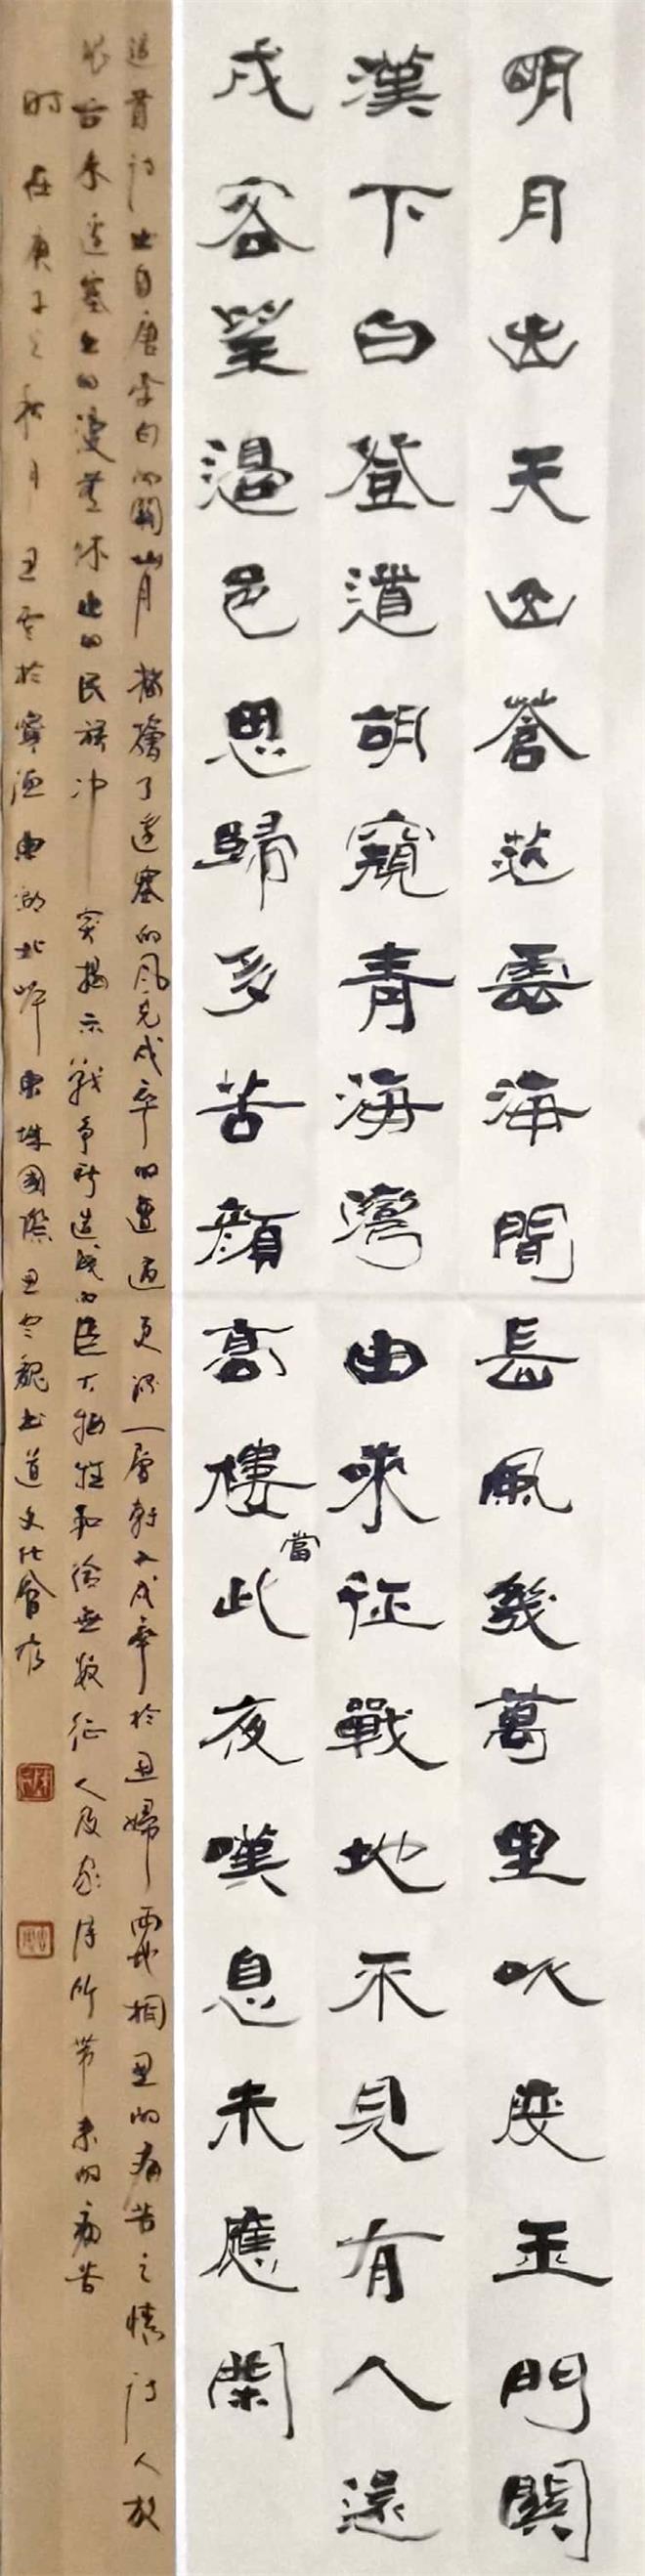 明月出天山蒼茫雲海間長風幾萬里吹度玉門關
漢下白登道胡窺青海灣由來征戰地不見有人還
戍客望邊色思歸多苦顏高樓當此夜嘆息未應閑
這首詩出自唐李白的關山月描繪了邊塞的风光戍卒的遭遇更深一層轉入戍卒於思婦兩地相思的痛苦之情詩人放
眼古來邊塞上的漫無休止的民族冲突揭示戰争所造成的巨大牺牲和給無數征人及家庭所带來的痛苦
时在庚子之秋月於寧德東北岸東國際思魏书道文化會